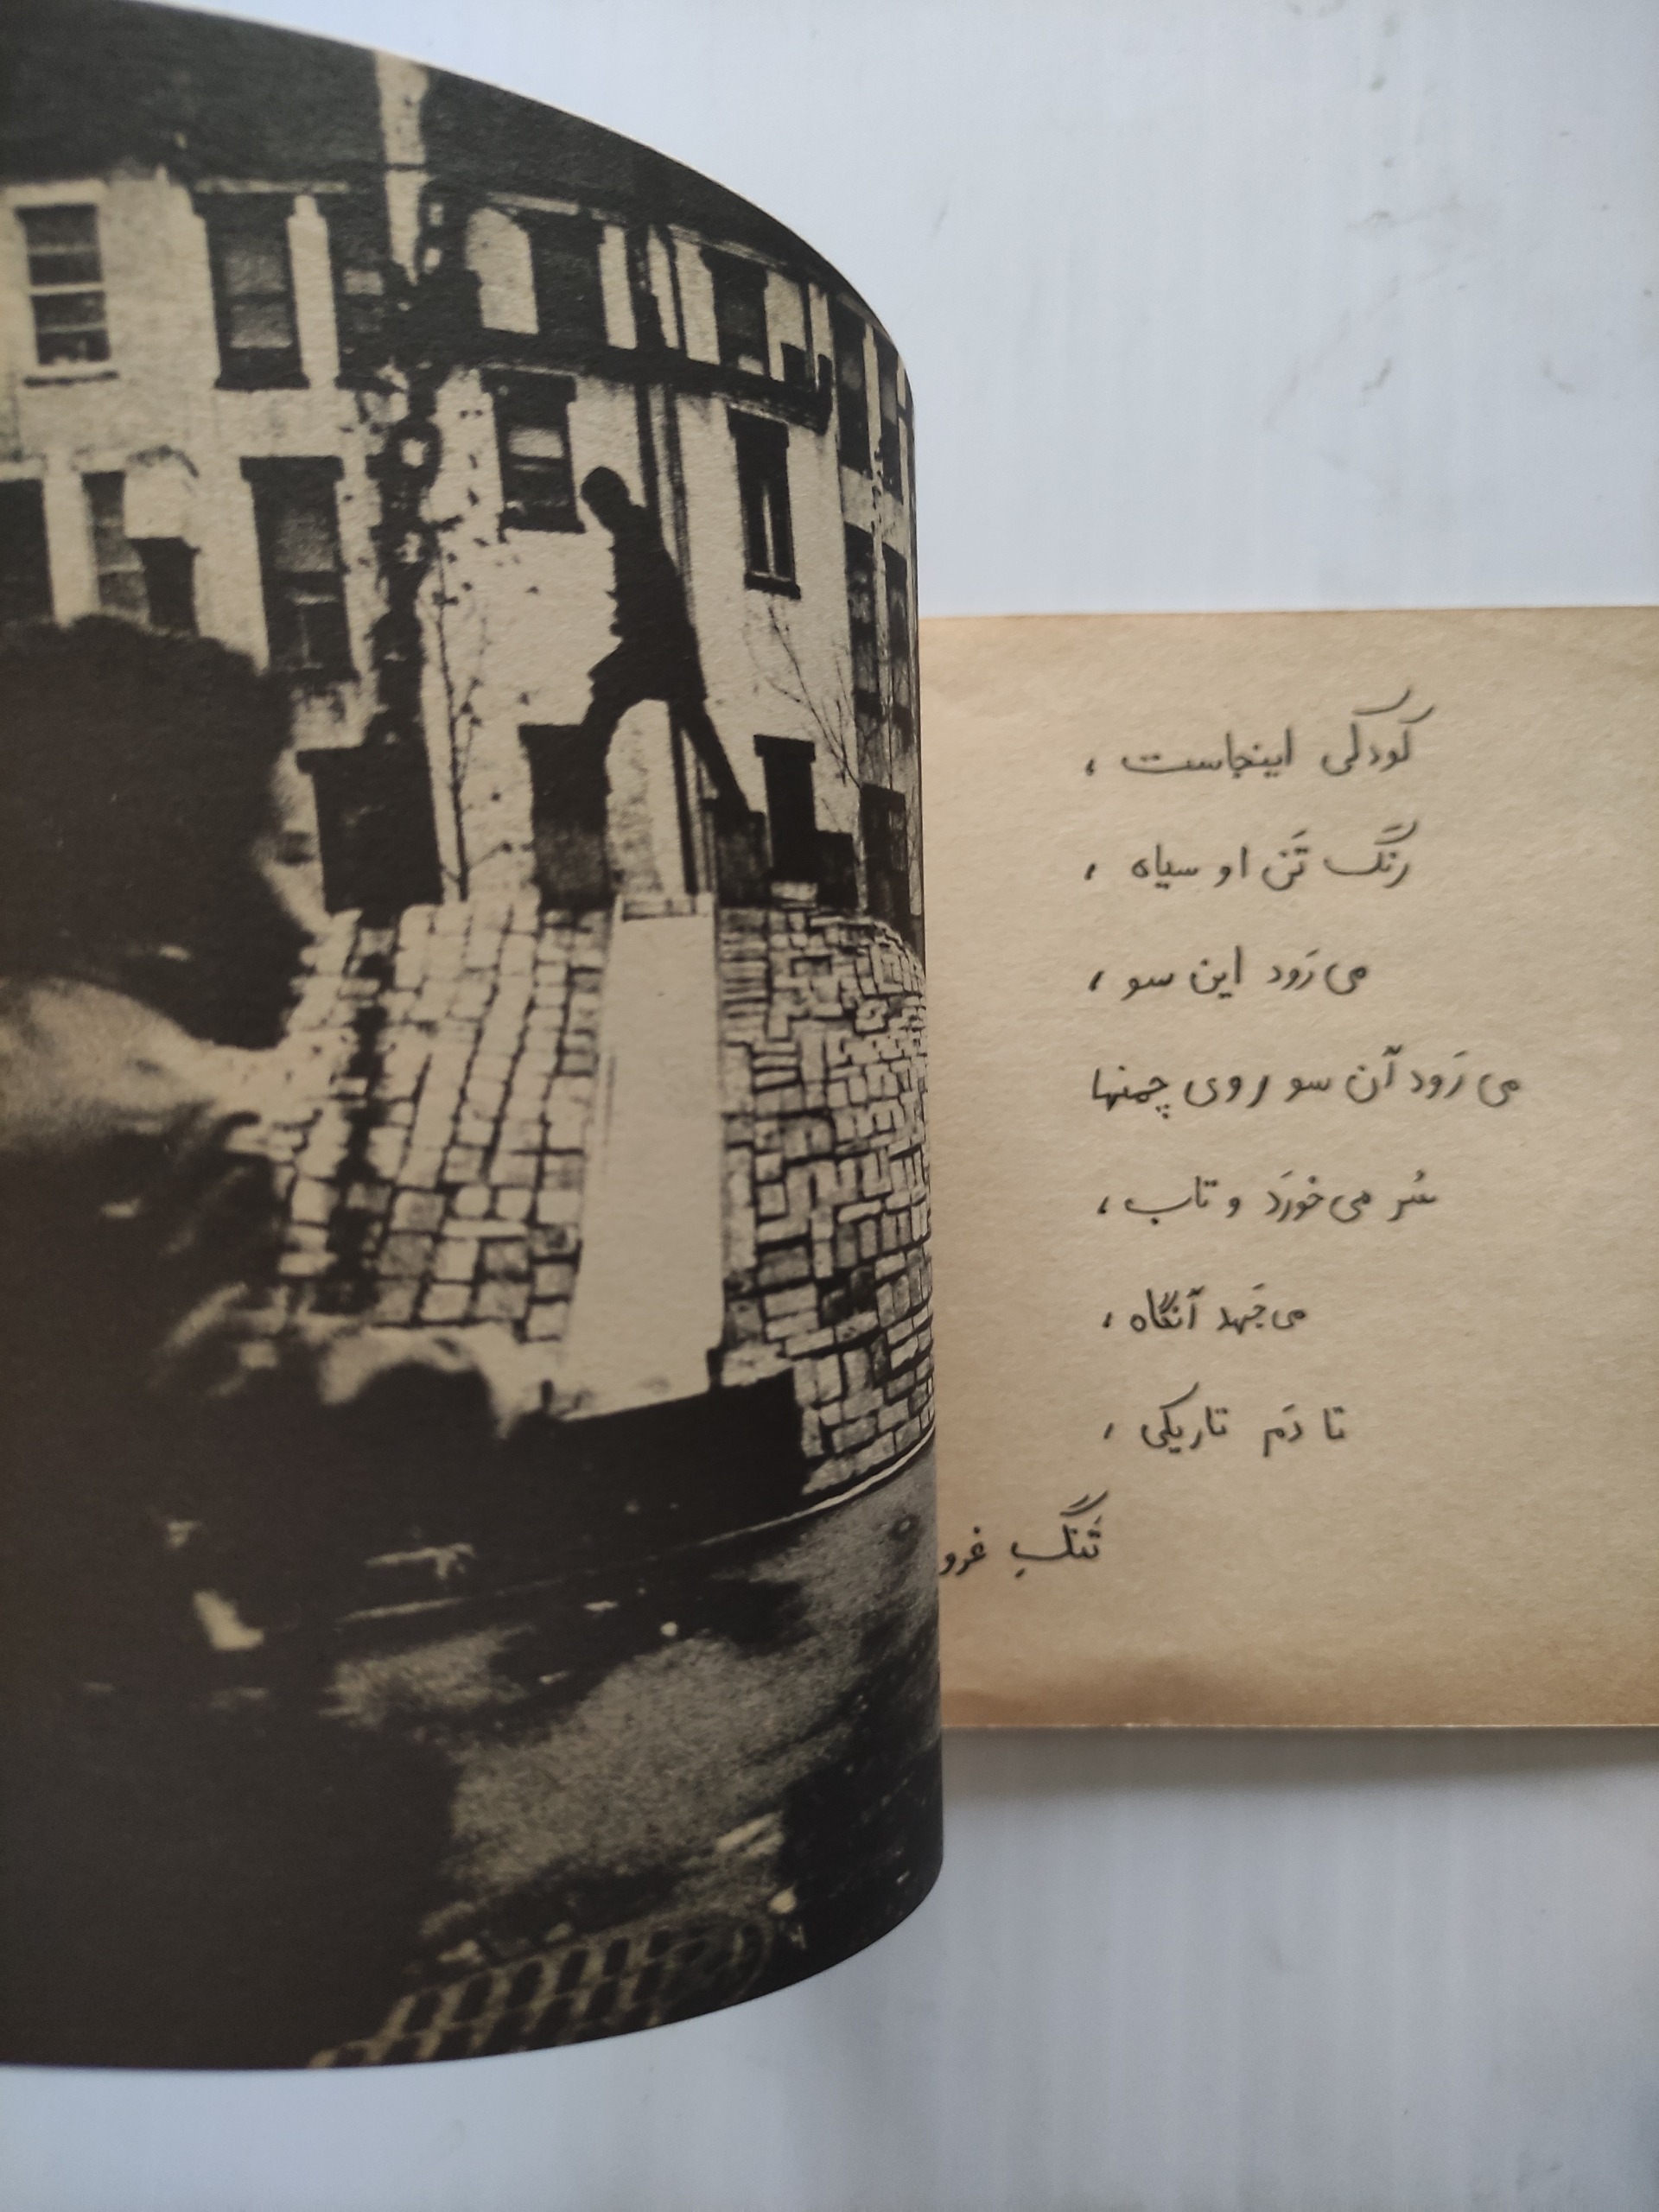 کودکی اینجاست ،
رنگ تَن او سیاه ،
می رَود این سو ،
می رَود آن سو روی چمنها
سُر می خورَد و تاب ،
می جَهد آنگاه ،
تا دَم تاریکی ،
تَنگِ غرو